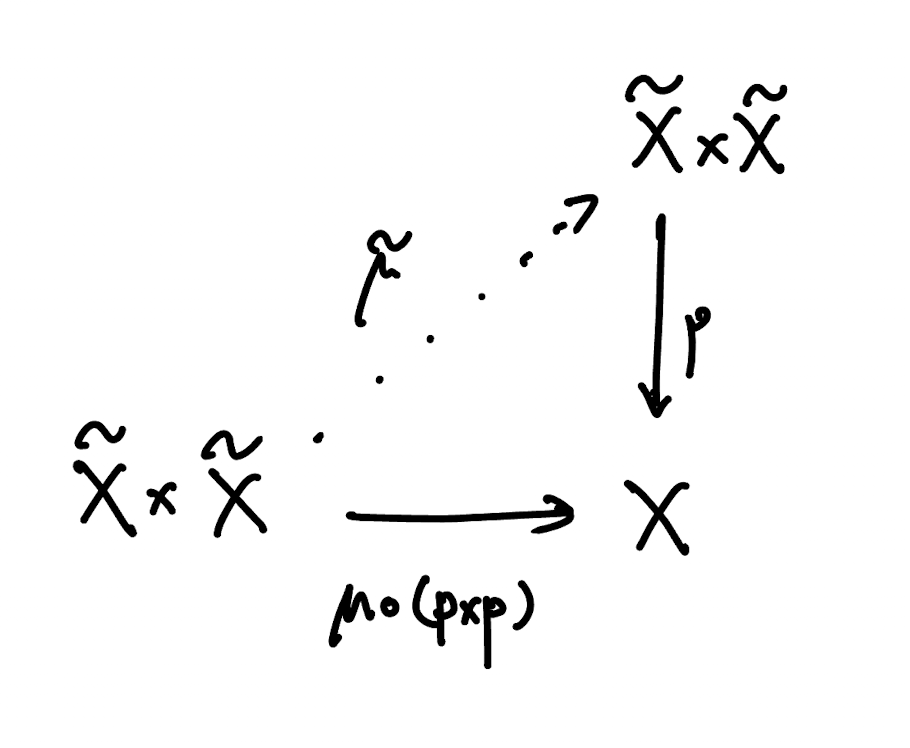 X̃ × X̃
μ̃
p
X̃ × X̃
X
μ∘(p×p)